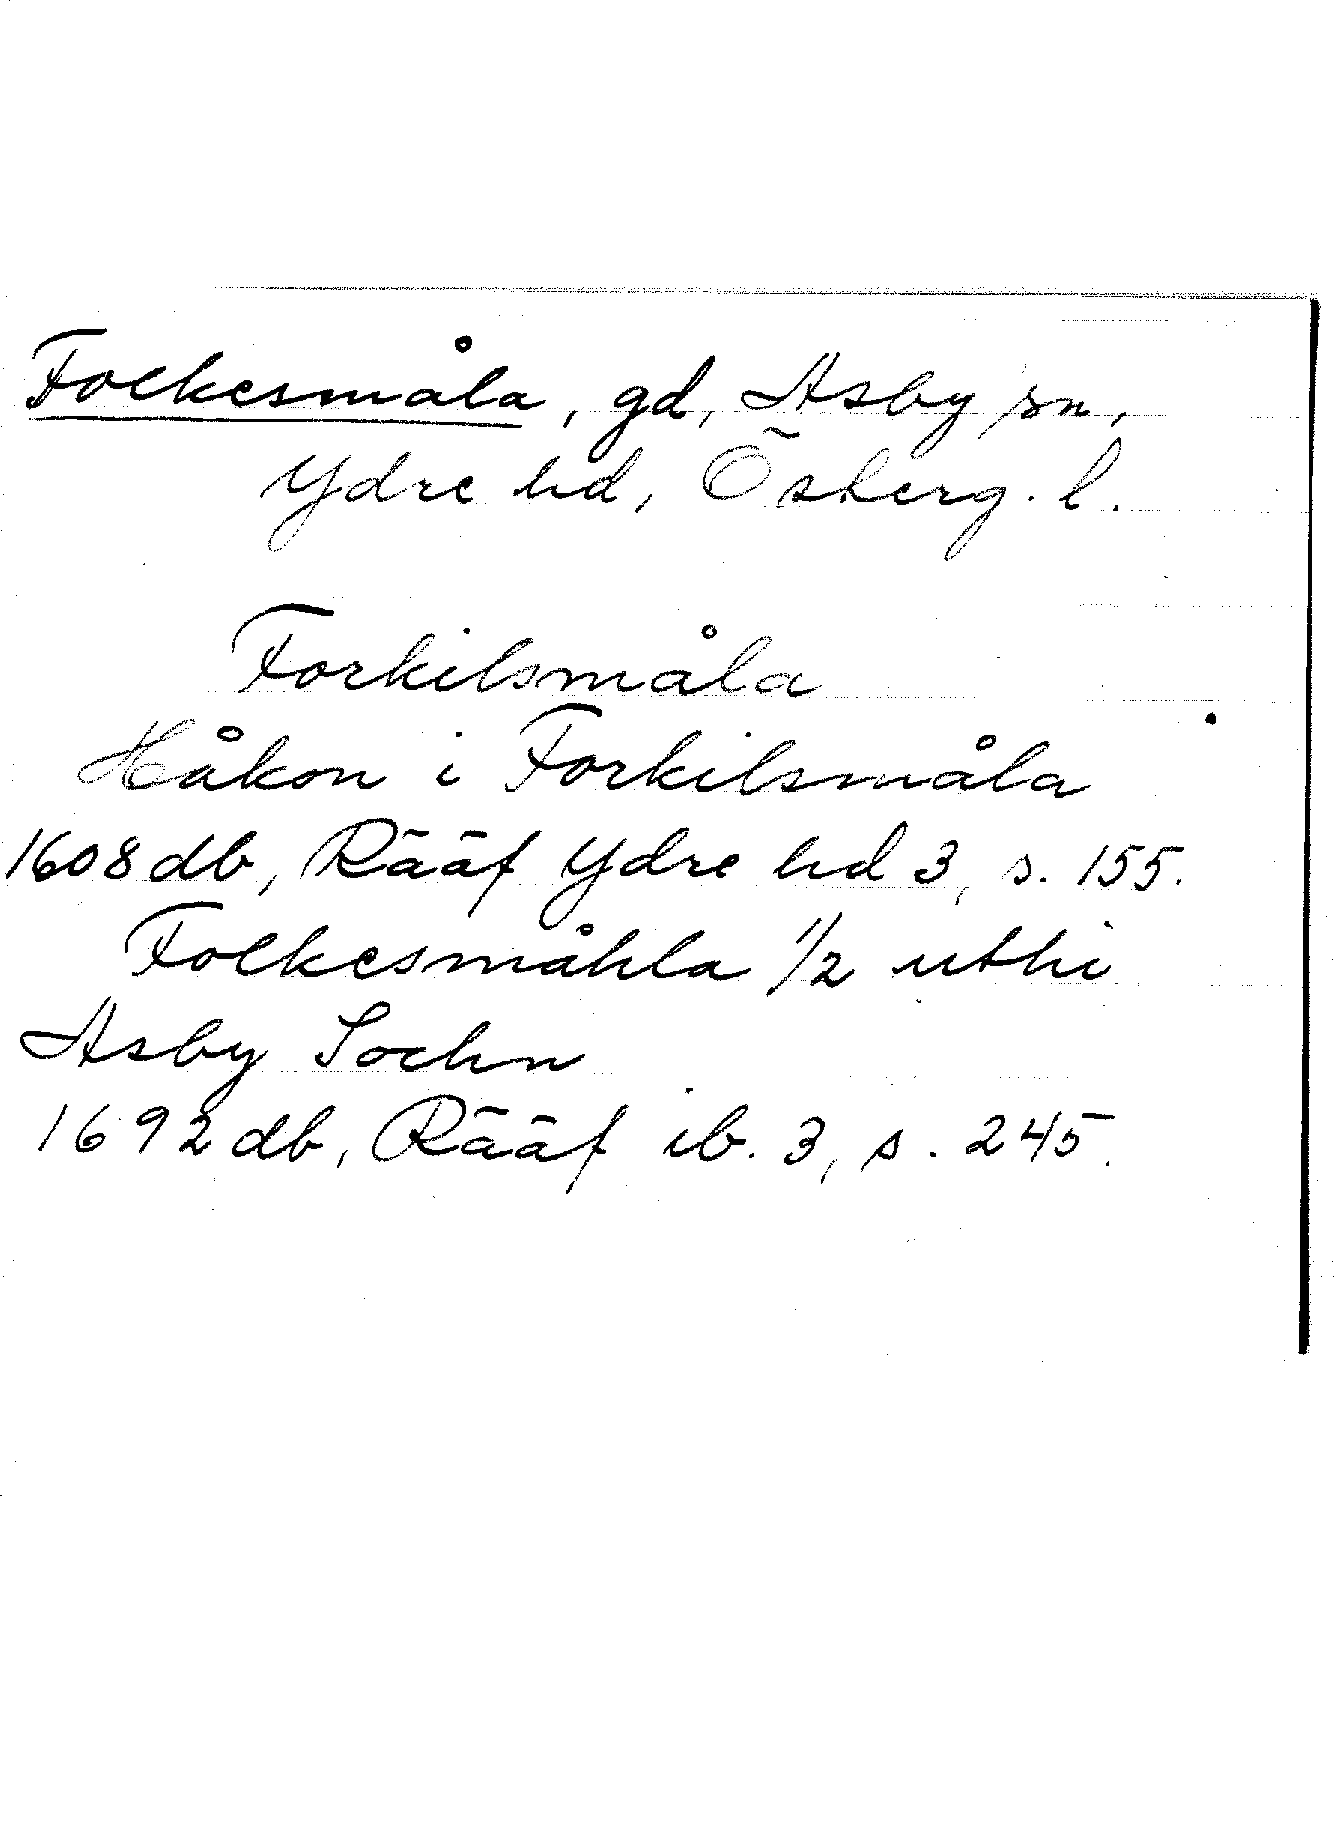 Folkesmåla, gd, Asby sn,
Ydre hd, Österg. l.
Forkilsmåla
Håkon i Forkilsmåla
1608 db, Rääf Ydre hd 3, s. 155.
Folkesmåhla 1/2 uthi
Asby Sochn
1692 db, Rääf ib. 3, s. 245.